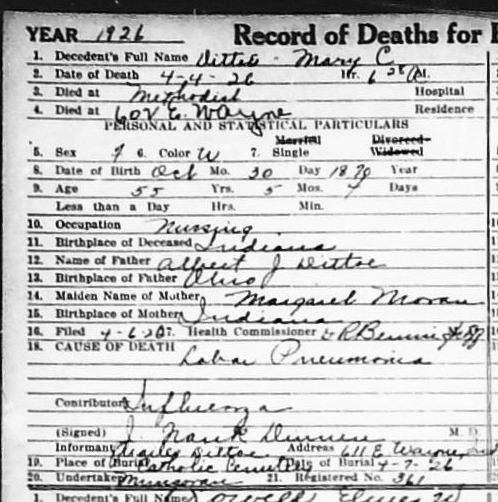 YEAR 1926 Record of Deaths for
1. Decedent's Full Name Dittoe - Mary C.
2. Date of Death 4-4-26 Hr. 6 A M.
3. Died at Methodist Hospital
4. Died at E. Wayne Residence
PERSONAL AND STATISTICAL PARTICULARS
Married Divorced
5. Sex F 6. Color W 7. Single Widowed
8. Date of Birth Oct Mo. 30 Day 1870 Year
9. Age 55 Yrs. 5 Mos. 4 Days
Less than a Day Hrs. Min.
10. Occupation Nursing
11. Birthplace of Deceased Indiana
12. Name of Father Albert J Dittoe
13. Birthplace of Father Ohio
14. Maiden Name of Mother Margaret Moran
15. Birthplace of Mother Indiana
16. Filed 4-6-26 17. Health Commissioner
18. CAUSE OF DEATH
Lobar Pneumonia
Contributory Influenza
(Signed) J Frank Dinnen M. D.
Informant Charles Dittoe Address 611 E Wayne
19. Place of Burial Catholic Cemetery Date of Burial 4-7-26
20. Undertaker Mungovan 21. Registered No. 361
1. Decedent's Full Name